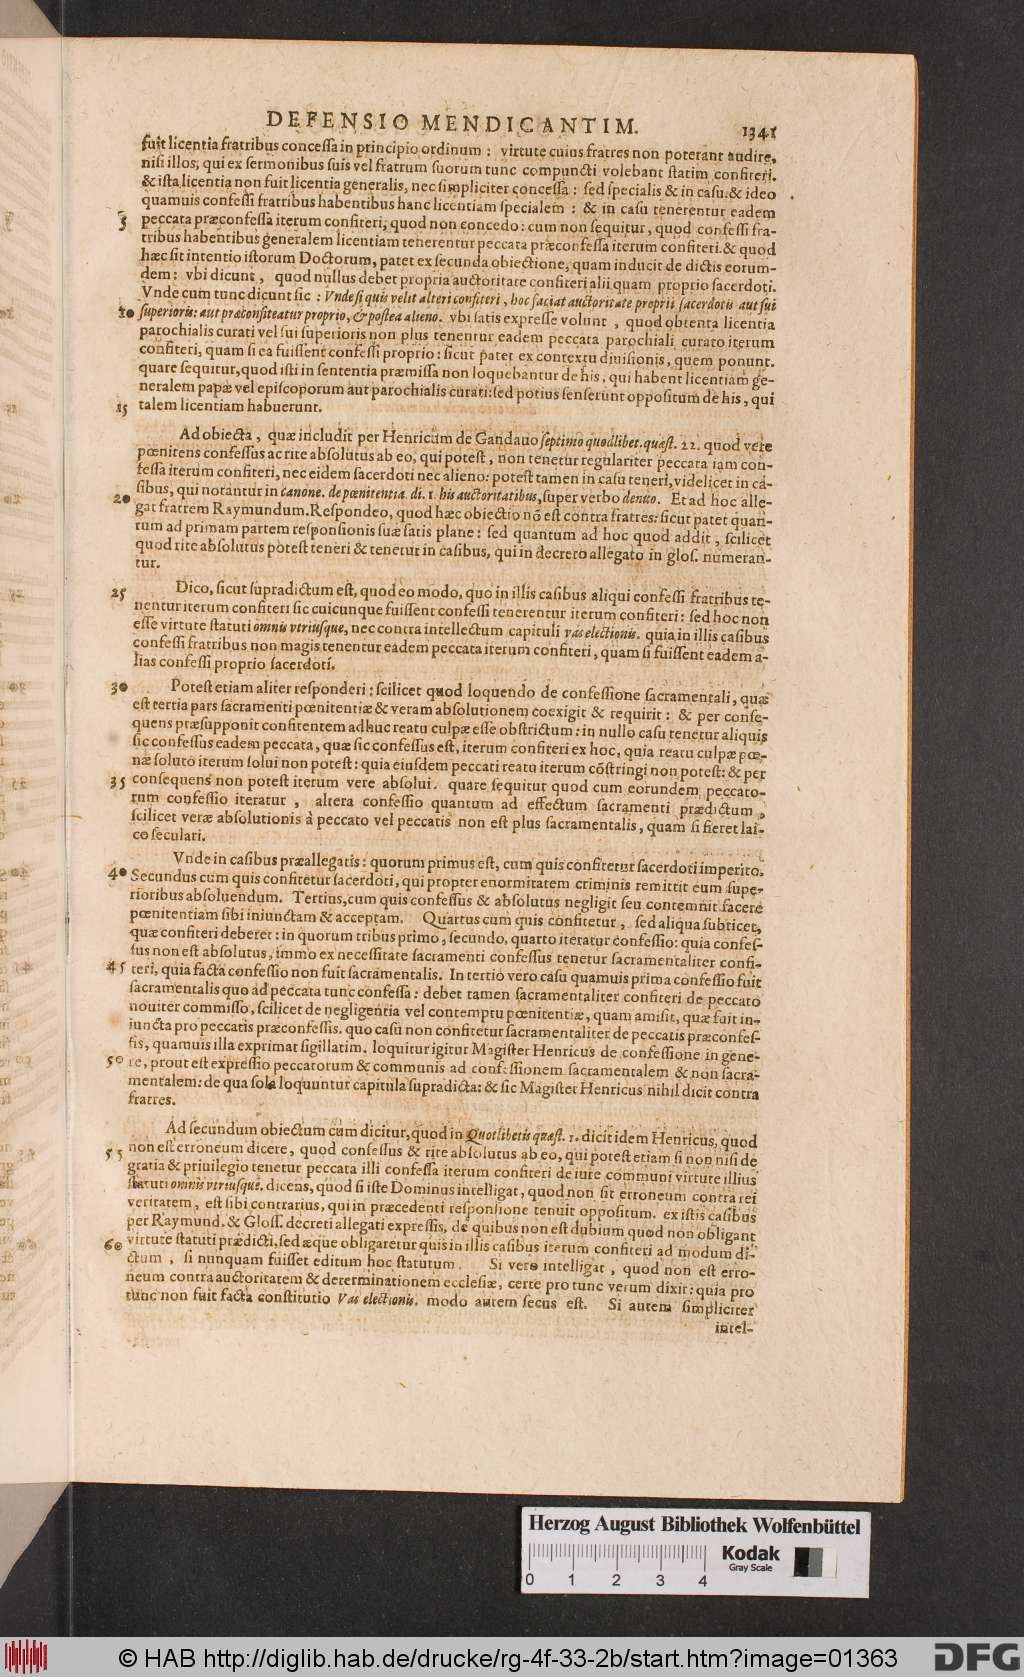 DEFENSIO MENDICANTIM. 1341
fuit licentia fratribus concessa in principio ordinum : virtute cuius fratres non poterant audire,
nisi illos, qui ex sermonibus suis vel fratrum suorum tunc compuncti volebant statim confiteri.
& ista licentia non fuit licentia generalis, nec simpliciter concessa : sed specialis & in casu. & ideo
quamuis confessi fratribus habentibus hanc licentiam specialem : & in casu tenerentur eadem
5 peccata præconfessa iterum confiteri, quod non concedo: cum non sequitur, quod confessi fra-
tribus habentibus generalem licentiam tenerentur peccata præconfessa iterum confiteri. & quod
hæc sit intentio istorum Doctorum, patet ex secunda obiectione, quam inducit de dictis eorum-
dem: vbi dicunt, quod nullus debet propria auctoritate confiteri alii quam proprio sacerdoti.
Vnde cum tunc dicunt sic : Vnde si quis velit alteri confiteri, hoc faciat auctoritate proprii sacerdotis aut sui
10 superioris: aut præconfiteatur proprio, & postea alieno. vbi satis expresse volunt, quod obtenta licentia
parochialis curati vel sui superioris non plus tenentur eadem peccata parochiali curato iterum
confiteri, quam si ea fuissent confessi proprio: sicut patet ex contextu diuisionis, quem ponunt.
quare sequitur, quod isti in sententia præmissa non loquebantur de his, qui habent licentiam ge-
neralem papæ vel episcoporum aut parochialis curati: sed potius senserunt oppositum de his, qui
15 talem licentiam habuerunt.
Ad obiecta, quæ includit per Henricum de Gandauo septimo quodlibet. quæst. 22. quod vere
pœnitens confessus ac rite absolutus ab eo, qui potest, non tenetur regulariter peccata iam con-
fessa iterum confiteri, nec eidem sacerdoti nec alieno: potest tamen in casu teneri, videlicet in ca-
sibus, qui notantur in canone. de pœnitentia. di. 1. his auctoritatibus, super verbo denuo. Et ad hoc alle-
20 gat fratrem Raymundum. Respondeo, quod hæc obiectio nō est contra fratres: sicut patet quan-
tum ad primam partem responsionis suæ satis plane: sed quantum ad hoc quod addit, scilicet
quod rite absolutus potest teneri & tenetur in casibus, qui in decreto allegato in glos. numeran-
tur.
25 Dico, sicut supradictum est, quod eo modo, quo in illis casibus aliqui confessi fratribus te-
nentur iterum confiteri sic cuicunque fuissent confessi tenerentur iterum confiteri: sed hoc non
esse virtute statuti omnis vtriusque, nec contra intellectum capituli vas electionis. quia in illis casibus
confessi fratribus non magis tenentur eadem peccata iterum confiteri, quam si fuissent eadem a-
lias confessi proprio sacerdoti.
30 Potest etiam aliter responderi: scilicet quod loquendo de confessione sacramentali, quæ
est tertia pars sacramenti pœnitentiæ & veram absolutionem coexigit & requirit: & per conse-
quens præsupponit confitentem adhuc reatu culpæ esse obstrictum: in nullo casu tenetur aliquis
sic confessus eadem peccata, quæ sic confessus est, iterum confiteri ex hoc, quia reatu culpæ pœ-
næ soluto iterum solui non potest: quia eiusdem peccati reatu iterum cōstringi non potest: & per
35 consequens non potest iterum vere absolui. quare sequitur quod cum eorundem peccato-
rum confessio iteratur, altera confessio quantum ad effectum sacramenti prædictum,
scilicet veræ absolutionis à peccato vel peccatis non est plus sacramentalis, quam si fieret lai-
co seculari.
Vnde in casibus præallegatis: quorum primus est, cum quis confitetur sacerdoti imperito.
40 Secundus cum quis confitetur sacerdoti, qui propter enormitatem criminis remittit eum supe-
rioribus absoluendum. Tertius, cum quis confessus & absolutus negligit seu contemnit facere
pœnitentiam sibi iniunctam & acceptam. Quartus cum quis confitetur, sed aliqua subticet,
quæ confiteri deberet: in quorum tribus primo, secundo, quarto iteratur confessio: quia confes-
sus non est absolutus, immo ex necessitate sacramenti confessus tenetur sacramentaliter confi-
45 teri, quia facta confessio non fuit sacramentalis. In tertio vero casu quamuis prima confessio fuit
sacramentalis quo ad peccata tunc confessa: debet tamen sacramentaliter confiteri de peccato
nouiter commisso, scilicet de negligentia vel contemptu pœnitentiæ, quam amisit, quæ fuit in-
iuncta pro peccatis præconfessis. quo casu non confitetur sacramentaliter de peccatis præconfes-
sis, quamuis illa exprimat sigillatim. loquitur igitur Magister Henricus de confessione in gene-
50 re, prout est expressio peccatorum & communis ad confessionem sacramentalem & non sacra-
mentalem: de qua sola loquuntur capitula supradicta: & sic Magister Henricus nihil dicit contra
fratres.
Ad secundum obiectum cùm dicitur, quod in Quotlibetis quæst. 1. dicit idem Henricus, quod
55 non est erroneum dicere, quod confessus & rite absolutus ab eo, qui potest etiam si non nisi de
gratia & priuilegio tenetur peccata illi confessa iterum confiteri de iure communi virtute illius
statuti omnis vtriusque. dicens, quod si iste Dominus intelligat, quod non sit erroneum contra rei
veritatem, est sibi contrarius, qui in præcedenti responsione tenuit oppositum. ex istis casibus
per Raymund. & Gloss. decreti allegati expressis, de quibus non est dubium quod non obligant
60 virtute statuti prædicti, sed æque obligaretur quis in illis casibus iterum confiteri ad modum di-
ctum, si nunquam fuisset editum hoc statutum. Si vero intelligat, quod non est erro-
neum contra auctoritatem & determinationem ecclesiæ, certe pro tunc verum dixit: quia pro
tunc non fuit facta constitutio Vas electionis. modo autem secus est. Si autem simpliciter
intel-
Herzog August Bibliothek Wolfenbüttel
Kodak
Gray Scale
0 1 2 3 4
© HAB http://diglib.hab.de/drucke/rg-4f-33-2b/start.htm?image=01363
DFG